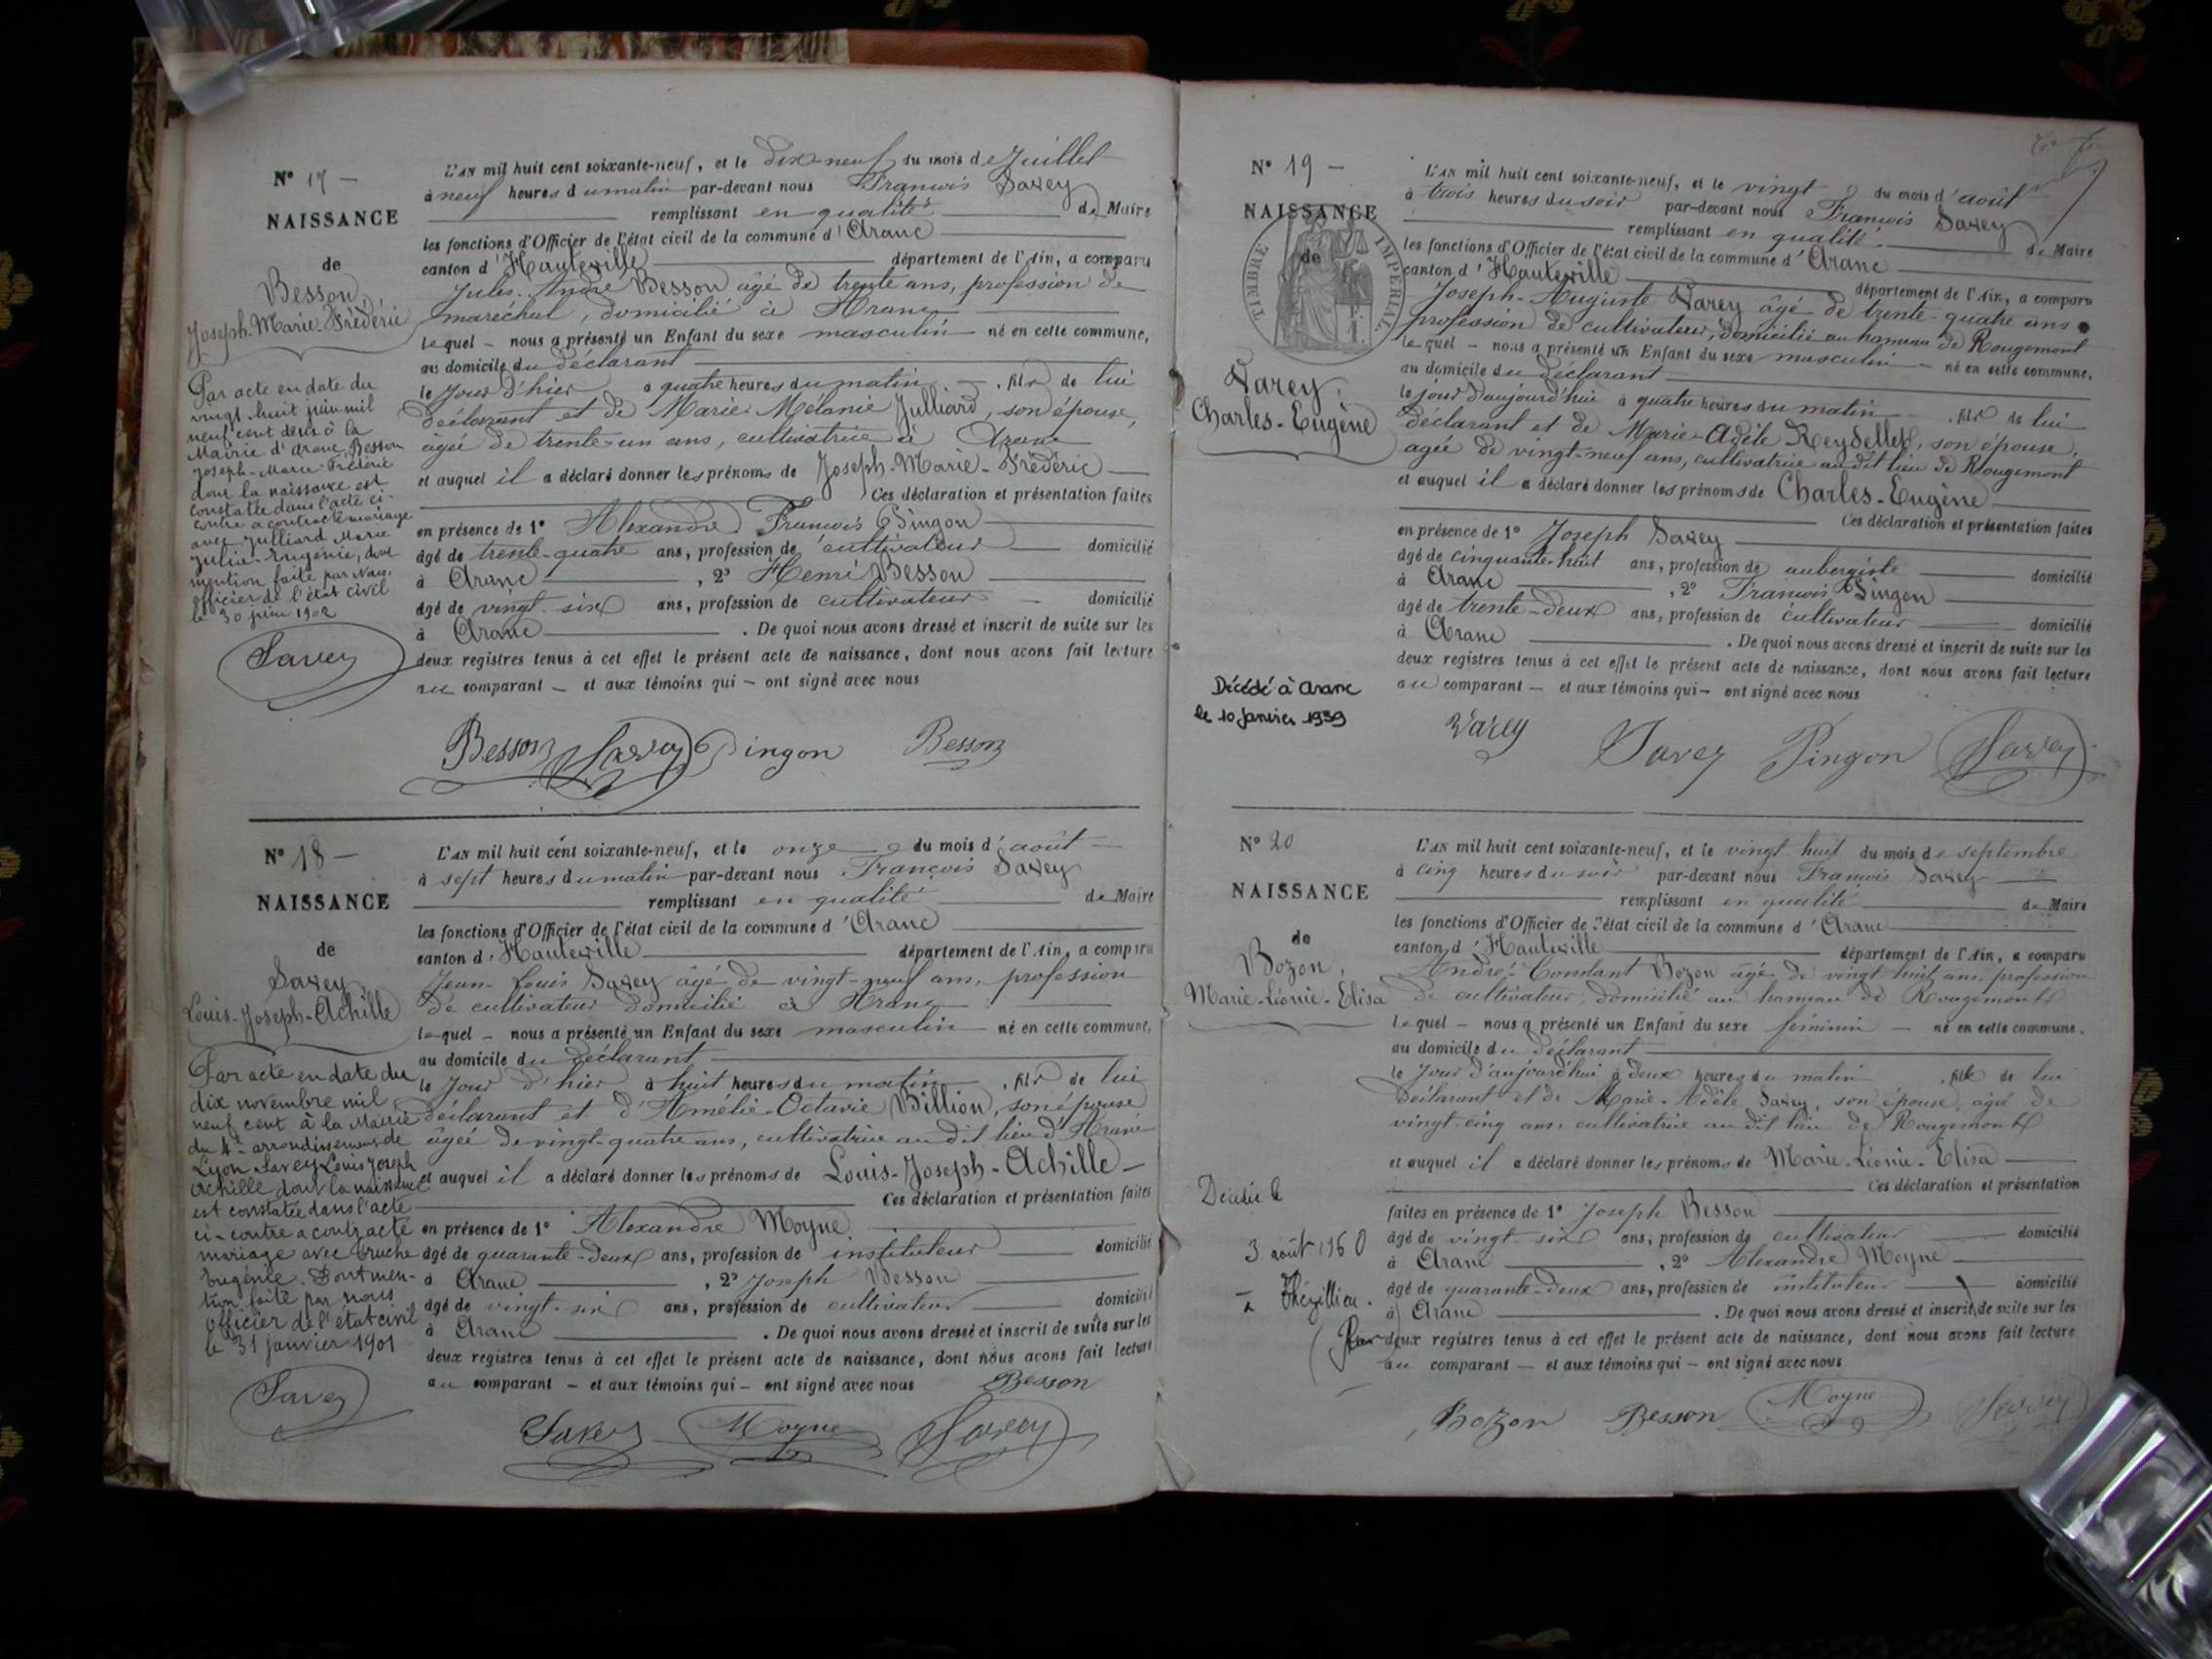 N° 17 —
NAISSANCE
de
Besson,
Joseph-Marie-Frédéric
Par acte en date du
vingt huit juin mil
neuf cent deux à la
Mairie d'Aranc, Besson
Joseph-Marie-Frédéric
dont la naissance est
constatée dans l'acte ci-
contre a contracté mariage
avec Julliard Marie
Julie-Eugénie, dont
mention faite par Nous,
officier de l'état civil
le 30 juin 1902
Savey
L'AN mil huit cent soixante-neuf, et le dix-neuf du mois de Juillet
à neuf heures du matin par-devant nous François Savey
remplissant en qualité de Maire
les fonctions d'Officier de l'état civil de la commune d'Aranc
canton d'Hauteville département de l'Ain, a comparu
Jules-André Besson âgé de trente ans, profession de
maréchal, domicilié à Aranc
lequel — nous a présenté un Enfant du sexe masculin né en cette commune,
au domicile du déclarant
le jour d'hier à quatre heures du matin, fils de lui
déclarant et de Marie-Mélanie Julliard, son épouse,
âgée de trente-un ans, cultivatrice à Aranc
et auquel il a déclaré donner les prénoms de Joseph-Marie-Frédéric
Ces déclaration et présentation faites
en présence de 1° Alexandre François Pingon
âgé de trente-quatre ans, profession de cultivateur domicilié
à Aranc, 2° Henri Besson
âgé de vingt-six ans, profession de cultivateur domicilié
à Aranc. De quoi nous avons dressé et inscrit de suite sur les
deux registres tenus à cet effet le présent acte de naissance, dont nous avons fait lecture
au comparant — et aux témoins qui — ont signé avec nous
Besson Savey Pingon Besson
N° 18 —
NAISSANCE
de
Savey,
Louis-Joseph-Achille
Par acte en date du
dix novembre mil
neuf cent à la Mairie
du 4e arrondissement de
Lyon Savey Louis Joseph
Achille dont la naissance
est constatée dans l'acte
ci-contre a contracté
mariage avec Bruche
Eugénie. Dont men-
tion faite par nous
officier de l'état civil
le 31 janvier 1901
Savey
L'AN mil huit cent soixante-neuf, et le onze du mois d'août
à sept heures du matin par-devant nous François Savey
remplissant en qualité de Maire
les fonctions d'Officier de l'état civil de la commune d'Aranc
canton d'Hauteville département de l'Ain, a comparu
Jean-Louis Savey âgé de vingt-neuf ans, profession
de cultivateur domicilié à Aranc
lequel — nous a présenté un Enfant du sexe masculin né en cette commune,
au domicile du déclarant
le jour d'hier à huit heures du matin, fils de lui
déclarant et d'Amélie-Octavie Billion, son épouse
âgée de vingt-quatre ans, cultivatrice au dit lieu d'Aranc
et auquel il a déclaré donner les prénoms de Louis-Joseph-Achille —
Ces déclaration et présentation faites
en présence de 1° Alexandre Moyne
âgé de quarante-deux ans, profession de instituteur domicilié
à Aranc, 2° Joseph Besson
âgé de vingt-six ans, profession de cultivateur domicilié
à Aranc. De quoi nous avons dressé et inscrit de suite sur les
deux registres tenus à cet effet le présent acte de naissance, dont nous avons fait lecture
au comparant — et aux témoins qui — ont signé avec nous Besson
Savey Moyne Savey
N° 19 —
NAISSANCE
de
TIMBRE IMPÉRIAL
Varey,
Charles-Eugène
Décédé à Aranc
le 10 Janvier 1939
L'AN mil huit cent soixante-neuf, et le vingt du mois d'août
à trois heures du soir par-devant nous François Savey
remplissant en qualité de Maire
les fonctions d'Officier de l'état civil de la commune d'Aranc
canton d'Hauteville département de l'Ain, a comparu
Joseph-Auguste Varey âgé de trente-quatre ans
profession de cultivateur, domicilié au hameau de Rougemont
lequel — nous a présenté un Enfant du sexe masculin — né en cette commune,
au domicile du déclarant
le jour d'aujourd'hui à quatre heures du matin, fils de lui
déclarant et de Marie-Adèle Reydellet, son épouse,
agée de vingt-neuf ans, cultivatrice au dit lieu de Rougemont
et auquel il a déclaré donner les prénoms de Charles-Eugène
Ces déclaration et présentation faites
en présence de 1° Joseph Savey
âgé de cinquante-huit ans, profession de aubergiste domicilié
à Aranc, 2° François Pingon
âgé de trente-deux ans, profession de cultivateur domicilié
à Aranc. De quoi nous avons dressé et inscrit de suite sur les
deux registres tenus à cet effet le présent acte de naissance, dont nous avons fait lecture
au comparant — et aux témoins qui — ont signé avec nous
Varey Savey Pingon Savey
N° 20
NAISSANCE
de
Bozon,
Marie-Léonie-Elisa
Décédée le
3 août 1960
à Thézillieu.
L'AN mil huit cent soixante-neuf, et le vingt-huit du mois de septembre
à cinq heures du soir par-devant nous François Savey
remplissant en qualité de Maire
les fonctions d'Officier de l'état civil de la commune d'Aranc
canton d'Hauteville département de l'Ain, a comparu
André-Constant Bozon âgé de vingt huit ans, profession
de cultivateur, domicilié au hameau de Rougemont
lequel — nous a présenté un Enfant du sexe féminin — né en cette commune,
au domicile du déclarant
le jour d'aujourd'hui à deux heures du matin, fille de lui
déclarant et de Marie-Adèle Savey, son épouse, agée de
vingt-cinq ans, cultivatrice au dit lieu de Rougemont
et auquel il a déclaré donner les prénoms de Marie-Léonie-Elisa
Ces déclaration et présentation
faites en présence de 1° Joseph Besson
âgé de vingt-six ans, profession de cultivateur domicilié
à Aranc, 2° Alexandre Moyne
âgé de quarante-deux ans, profession de instituteur domicilié
à Aranc. De quoi nous avons dressé et inscrit de suite sur les
deux registres tenus à cet effet le présent acte de naissance, dont nous avons fait lecture
au comparant — et aux témoins qui — ont signé avec nous
Bozon Besson Moyne Savey